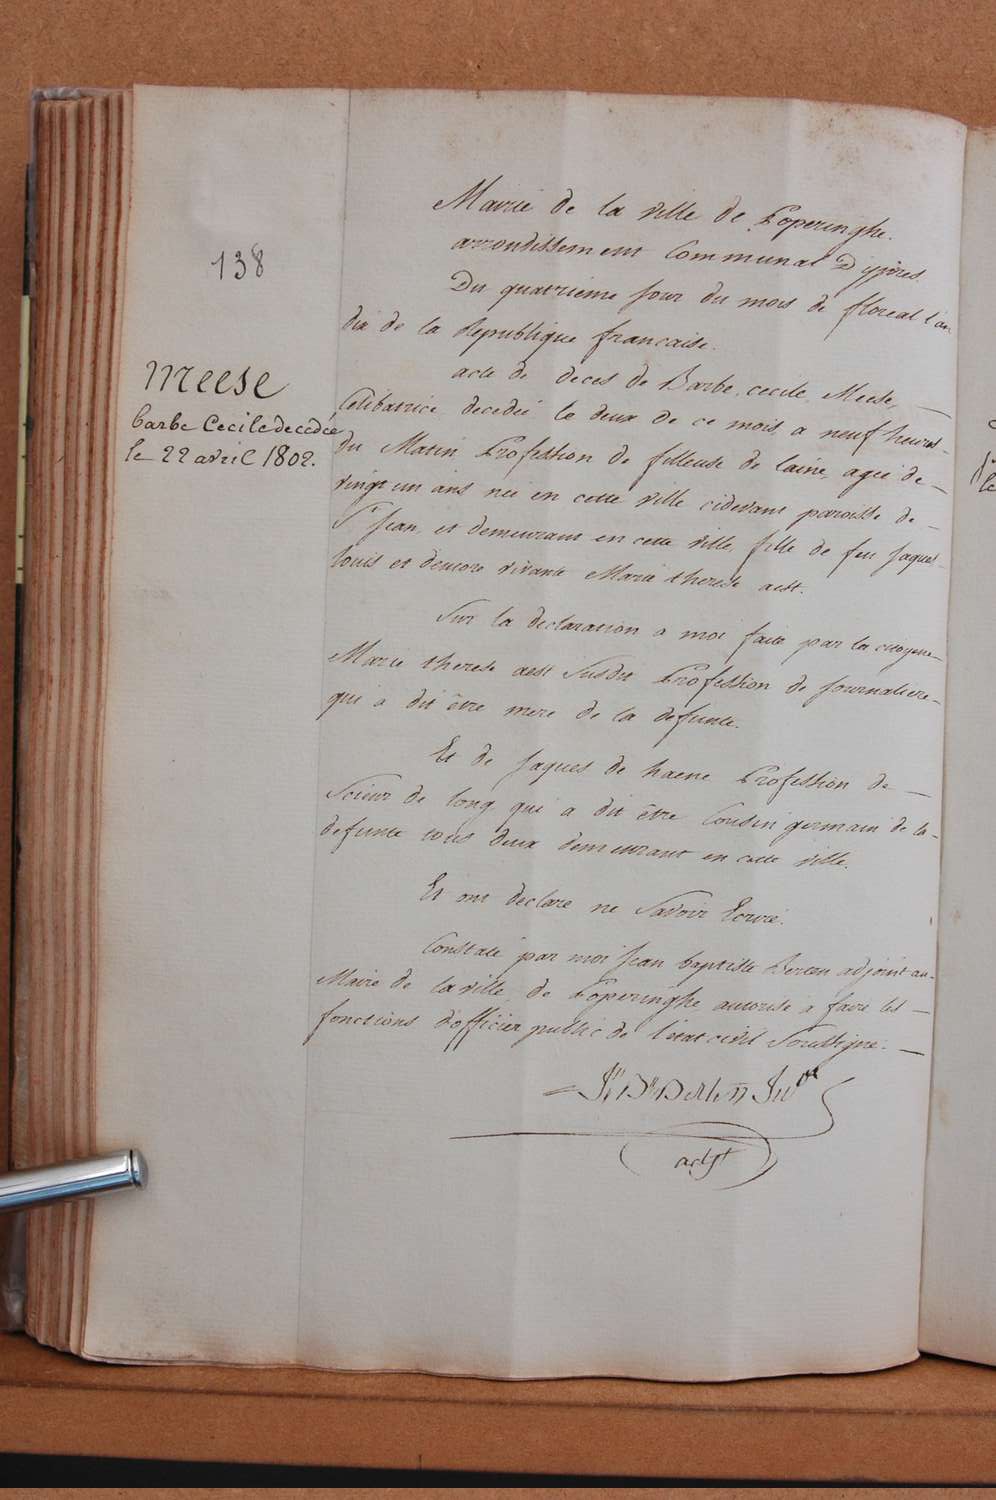 138
Meese
barbe Cecile decedée
le 22 avril 1802.
Mairie de la ville de Poperinghe.
arrondissement Communal D'ypres.
Du quatrieme jour du mois de floreal l'an
dix de la Republique francaise.
acte de deces de Barbe, cecile, Meese,
Celibatrice decedeé le deux de ce mois, a neuf heures
du Matin Profession de filleuse de laine, ageé de
vingt un ans neé en cette ville cidevant paroisse de
St Jean, et demeurant en cette ville, fille de feu Jaques
louis et d'encore vivante Marie therese aest.
Sur la declaration a moi faite par la citoyene
Marie therese aest Susdit Profession de journaliere
qui a dit être mere de la defunte.
Et de Jaques de haene Profession de
Scieur de long qui a dit être Cousin germain de la
defunte tous deux demeurant en cette ville.
Et ont declare ne Savoir Ecrire.
Constaté par moi Jean baptiste Berten adjoint au
Maire de la ville, de Poperinghe autorisé à faire les
fonctions d'officier public de l'etat civil Soussigné.
Berten
adjt